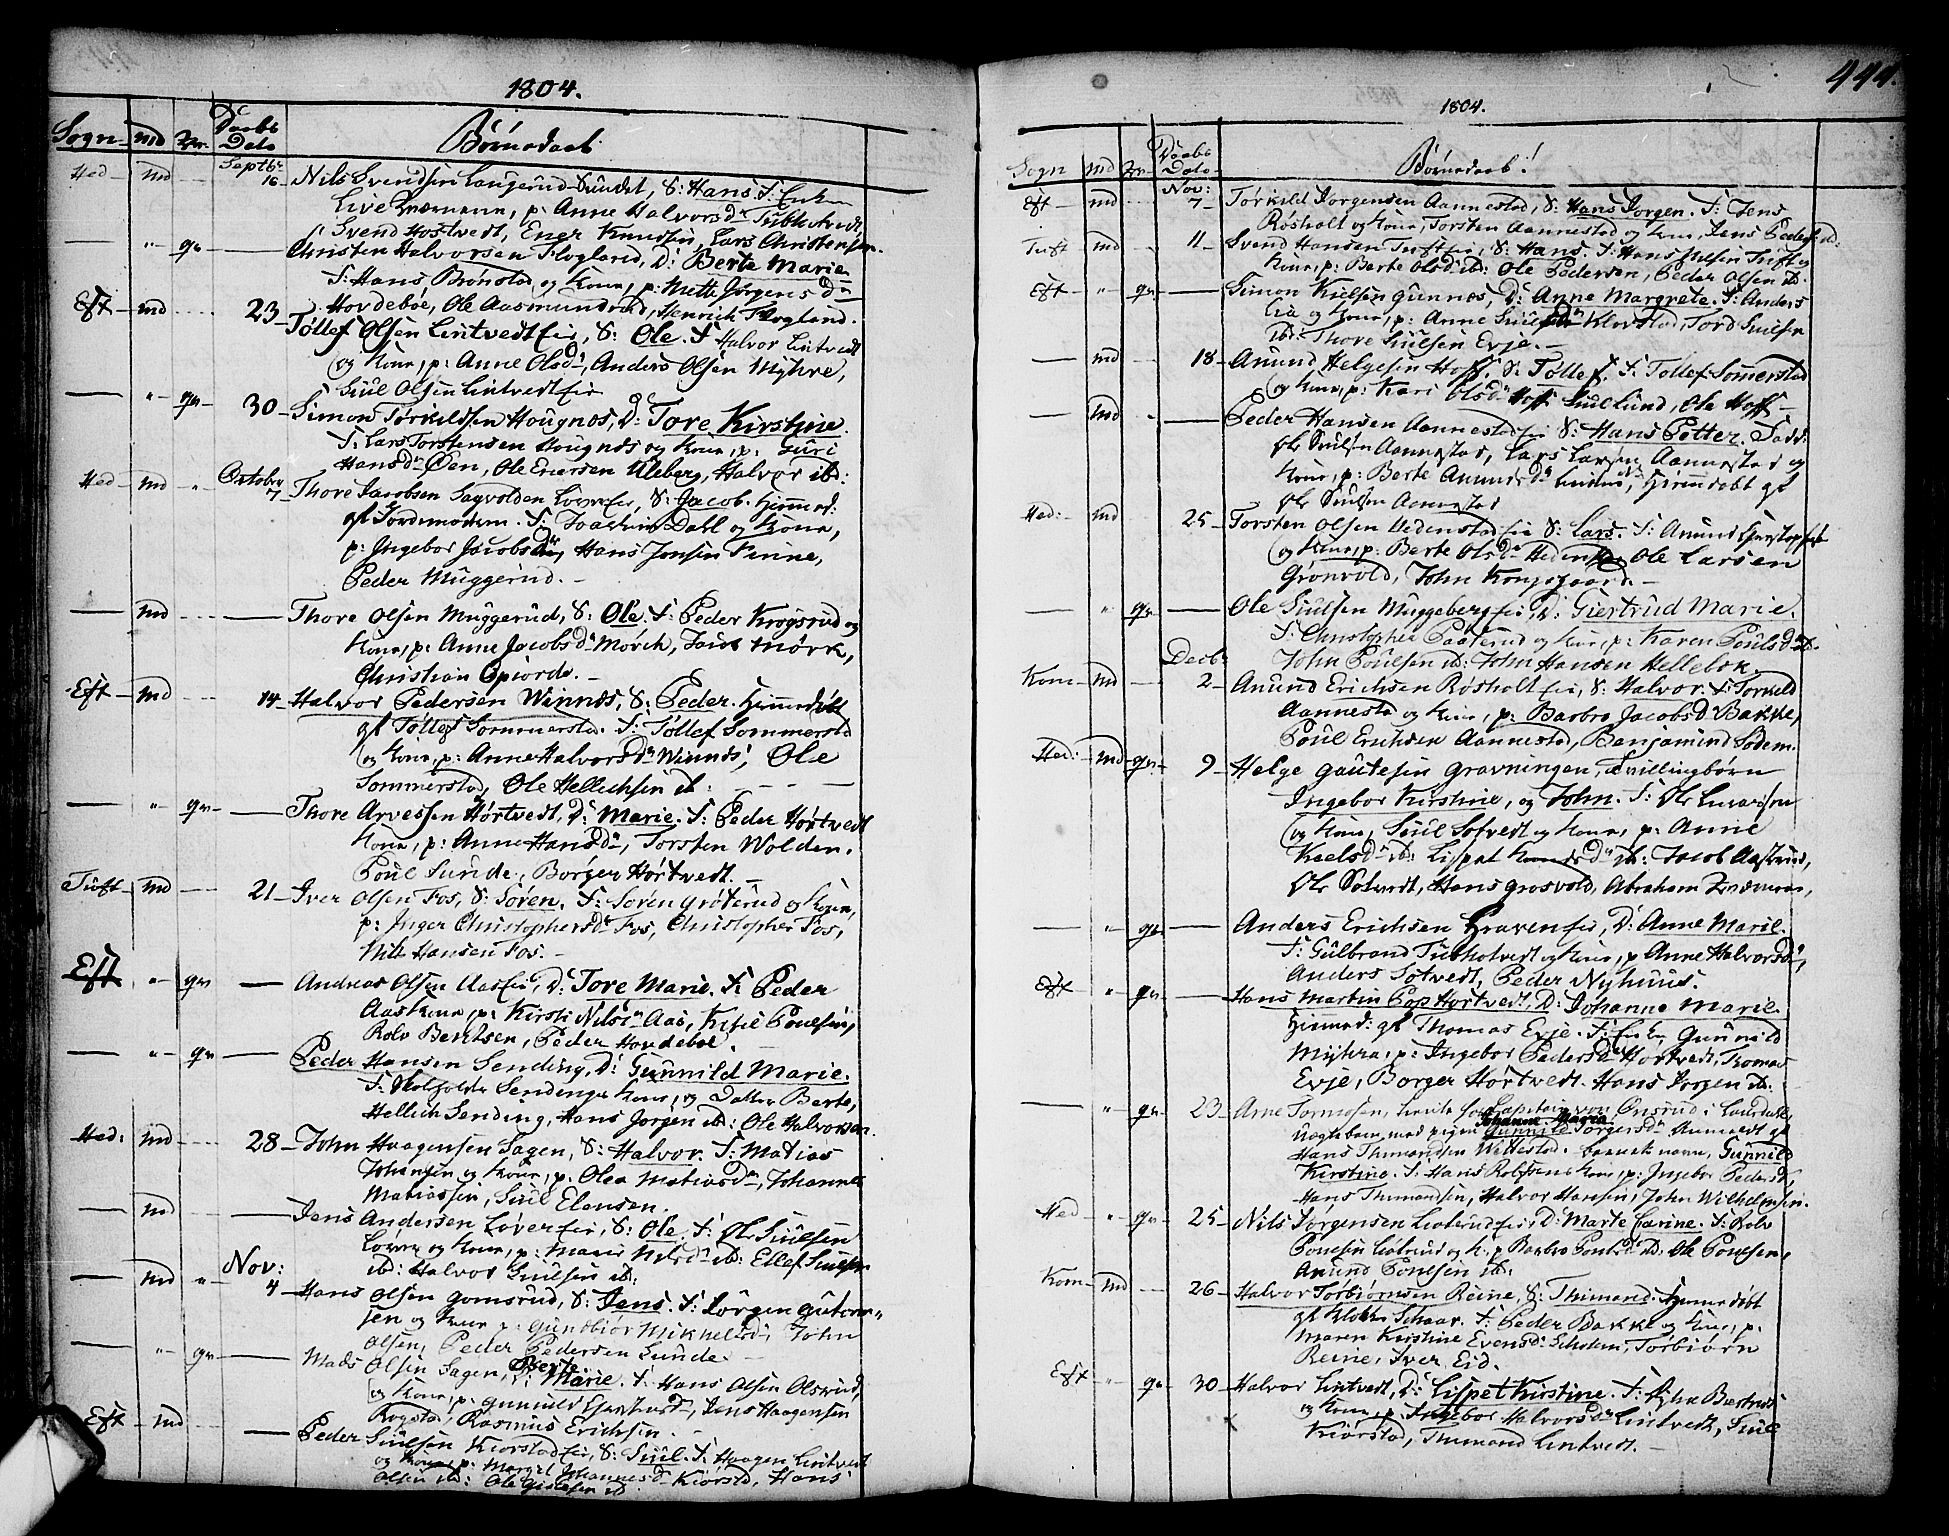 1804.
Sogn md qv. Daabs Dato Børnedaab
Hed md Septbr 16 Nils Svendsen Laugerud Sundet, S: Hans. F: Enken
Live Værnemn, p: Anne Halvorsdr Tubhotvedt,
Svend Hostvedt, Ener Knudsen, Lars Christensen.
— " qv — Christen Halvorsen Skogland, D: Berte Marie
F: Hans Brønstad og Kone, p: Mette Jørgensdr
Hovdeboe, Ole Aasmundrud, Henrich Skogland.
Eft md 23 Tøllef Olsen Lintvedt eie, S: Ole. F: Halvor Lintvedt
og Kone, p: Anne Olsdr, Anders Olsen Myhre,
Siul Olsen Lintvedteie
— " qv 30 Simon Tørkildsen Hougnæs, D: Tore Kirstine.
F: Lars Torstensen Hougnæs og Kone, p: Guri
Hansdr Øen, Ole Enersen Uleberg, Halvor ib:
Hed md " October 7 Thore Jacobsen Sagvolden Lovereie, S: Jacob. Hjemmed:
af Jordemoderen. F: Joachim Dahl og Kone,
p: Ingebor Jacobsdr, Hans Jonsen Penne,
Peder Muggerud.
— md — Thore Olsen Muggerud, S: Ole. F: Peder Krogsrud og
Kone, p: Anne Jacobsdr Mørch, Mørk,
Christian Gjorde.
Eft md 14 Halvor Pedersen Winnæs, S: Peder. Hjemmedøbt
af Tøllef Sommerstad. F: Tøllef Sommerstad
og Kone, p: Anne Halvorsdr Winnæs, Ole
Sommerstad, Ole Hellichsen ib:
— " qv — Thore Arvessen Hørtvedt, D: Marie. F: Peder Hørtvedt
Kone, p: Anne Hansdr, Torsten Wolden.
Poul Sunde, Børger Hørtvedt.
Tuft md 21 Iver Olsen Fos, S: Søren. F: Søren Grøterud og Kone,
p: Inger Christophersdr Fos, Christopher Fos,
Nils Hansen Fos.
Eft " qv — Andreas Olsen Aaseie, D: Tore Marie. F: Peder
Aas Kone, p: Kirsti Nilsdr Aas, Kittil Poulsen,
Rolv Bentsen, Peder Hovdeboe.
— " qv — Peder Hansen Sending, D: Gunnild Marie.
F: Sendings Kone, og Datter Berte,
Hellich Sending, Hans Jørgen ib: Ole Halvorsen.
Hed: md 28 John Haagensen Sagen, S: Halvor. F: Matias
Johansen og Kone, p: Olea Matiasdr, Johannes
Matiassen, Siul Elensen.
— md — Jens Andersen Lovereie, S: Ole. F: Ole Siulsen
Lovere og Kone, p: Maren Nilsdr ib: Ellef Siulsen
ib: Halvor Siulsen ib:
— md " Nov: 4 Hans Olsen Gomsrud, S: Jens. F: Jørgen Gutorm-
sen og Kone p: Gunbiør Mikkelsdr, John
Olsen, Peder Pedersen Sunde
— " qv — Mads Olsen Sagen, D: Berte Marie. F: Hans Olsen Olsrud,
og Kone, p: Gunnild, Jens Haagensen
Rogstad, Rasmus Erichsen.
Eft md — Peder Siulsen Kiorstadeie, S: Siul. F: Haagen Lintvedt
og Kone, p: Margit Johannesdr Kiørstd, Hans
Olsen ib: Ole Gislesen ib.
444.
1804.
Sogn md qv Daabs Dato Børnedaab!
Eft md Nov: 7 Tørkild Jørgensen Aannestad, S: Hans Jørgen. F: Jens
Røsholt og Kone, Torsten Aannestad og Kone, Jens Pedersen ib:
Tuft md 11 Svend Hansen Tufteie, S: Hans. F: Hans Nilsen Tuft og
Kone, p: Berte Olsdr ib: Ole Pedersen, Peder Olsen ib.
Eft " qv — Simon Nielsen Gunnæs, D: Anne Margrete. F: Anders
Lia og Kone, p: Anne Siulsdr Klovstad, Tord Siulsen
ib: Thore Siulsen Evje.
— md 18 Anund Helgesen Hoff, S: Tøllef. F: Tøllef Sommerstad
og Kone, p: Kari Olsdr Hoff, Siul Lund, Ole Hoff
— md — Peder Hansen Aannestadeie S: Hans Petter. Fadd:
Ole Siulsen Aannestad, Lars Larsen Aannestad og
Kone, p: Berte Anunsdr, Hjemdøbt af
Ole Siulsen Aannestad
Hed: md 25 Torsten Olsen Hedenstadeie S: Lars. F: Anund
og Kone, p: Berte Olsdr Hedenstad Ole Larsen
Grønvold, John Kongsgaard.
— " qv — Ole Siulsen Muggebergeie, D: Giertrud Marie.
F: Christopher Paaterud og Kone, p: Karen Poulsdr ib.
John Poulsen ib: John Hansen Hellebek.
Kom md Decbr 2 Anund Erichsen Røsholteie, S: Halvor. F: Torkild
Aannestad og Kone, p: Barbro Jacobsdr Bakke,
Poul Erichsen Aannestad, Benjamin Sødem.
Hed: md qv: 9 Helge Gautesen Gravningen, Tvillingbørn
Ingebor Kirstine, og John. F: Ole
og Kone, Siul Sotvedt og Kone, p: Anne
Kælsdr ib: Lispet ib: Jacob Aastrud,
Ole Sotvedt, Hans Grosvold, Abraham
— " qv — Anders Erichsen Graveneie, D: Anne Marie.
F: Gulbrand Tubhotvedt og Kone, p: Anne Halvorsdr,
Anders Sotvedt, Peder Nyhuus.
Eft " qv — Hans Martin Pop Hørtvedt, D: Johanne Marie.
Hiemmed: af Thomas Evje. F: Enken Gunnild
Myhra, p: Ingebor Pedersdr Hørtvedt, Thomas
Evje, Børger Hørtvedt. Hans Jørgen ib:
— " qv 23 Arne Tormosen, Capitain von Ønsrud i
Uægtebarn med pigen Johanne Maria Gunnild Torgersdr Anmeldt af
Hans Thimandsen Willestad. barnets navn, Gunnild
Kirstine. F: Hans Rolfsens Kone, p: Ingebor Pedersdr,
Hans Thimandsen, Halvor Hansen, John Wilhelmsen.
Hed " qv 25 Nils Jørgensen Listerudeie, D: Marte Carine. F: Rolv
Poulsen Listerud og K. p: Barbro Poulsdr ib: Ole Poulsen,
Anund Poulsen ib:
Kom md 26 Halvor Torbiørnsen Reine, S: Thimand. Hjemmedøbt
af Klokker Schaar. F: Peder Bakke og Kone, p:
Maren Kirstine Evensdr, Torbiørn
Reine, Iver Eid.
Eft " qv 30 Halvor Lintvedt, D: Lispet Kirstine. F:
og Kone, p: Ingebor Halvorsdr Lintvedt, Siul
Kiørstad, Thimand Lintvedt.